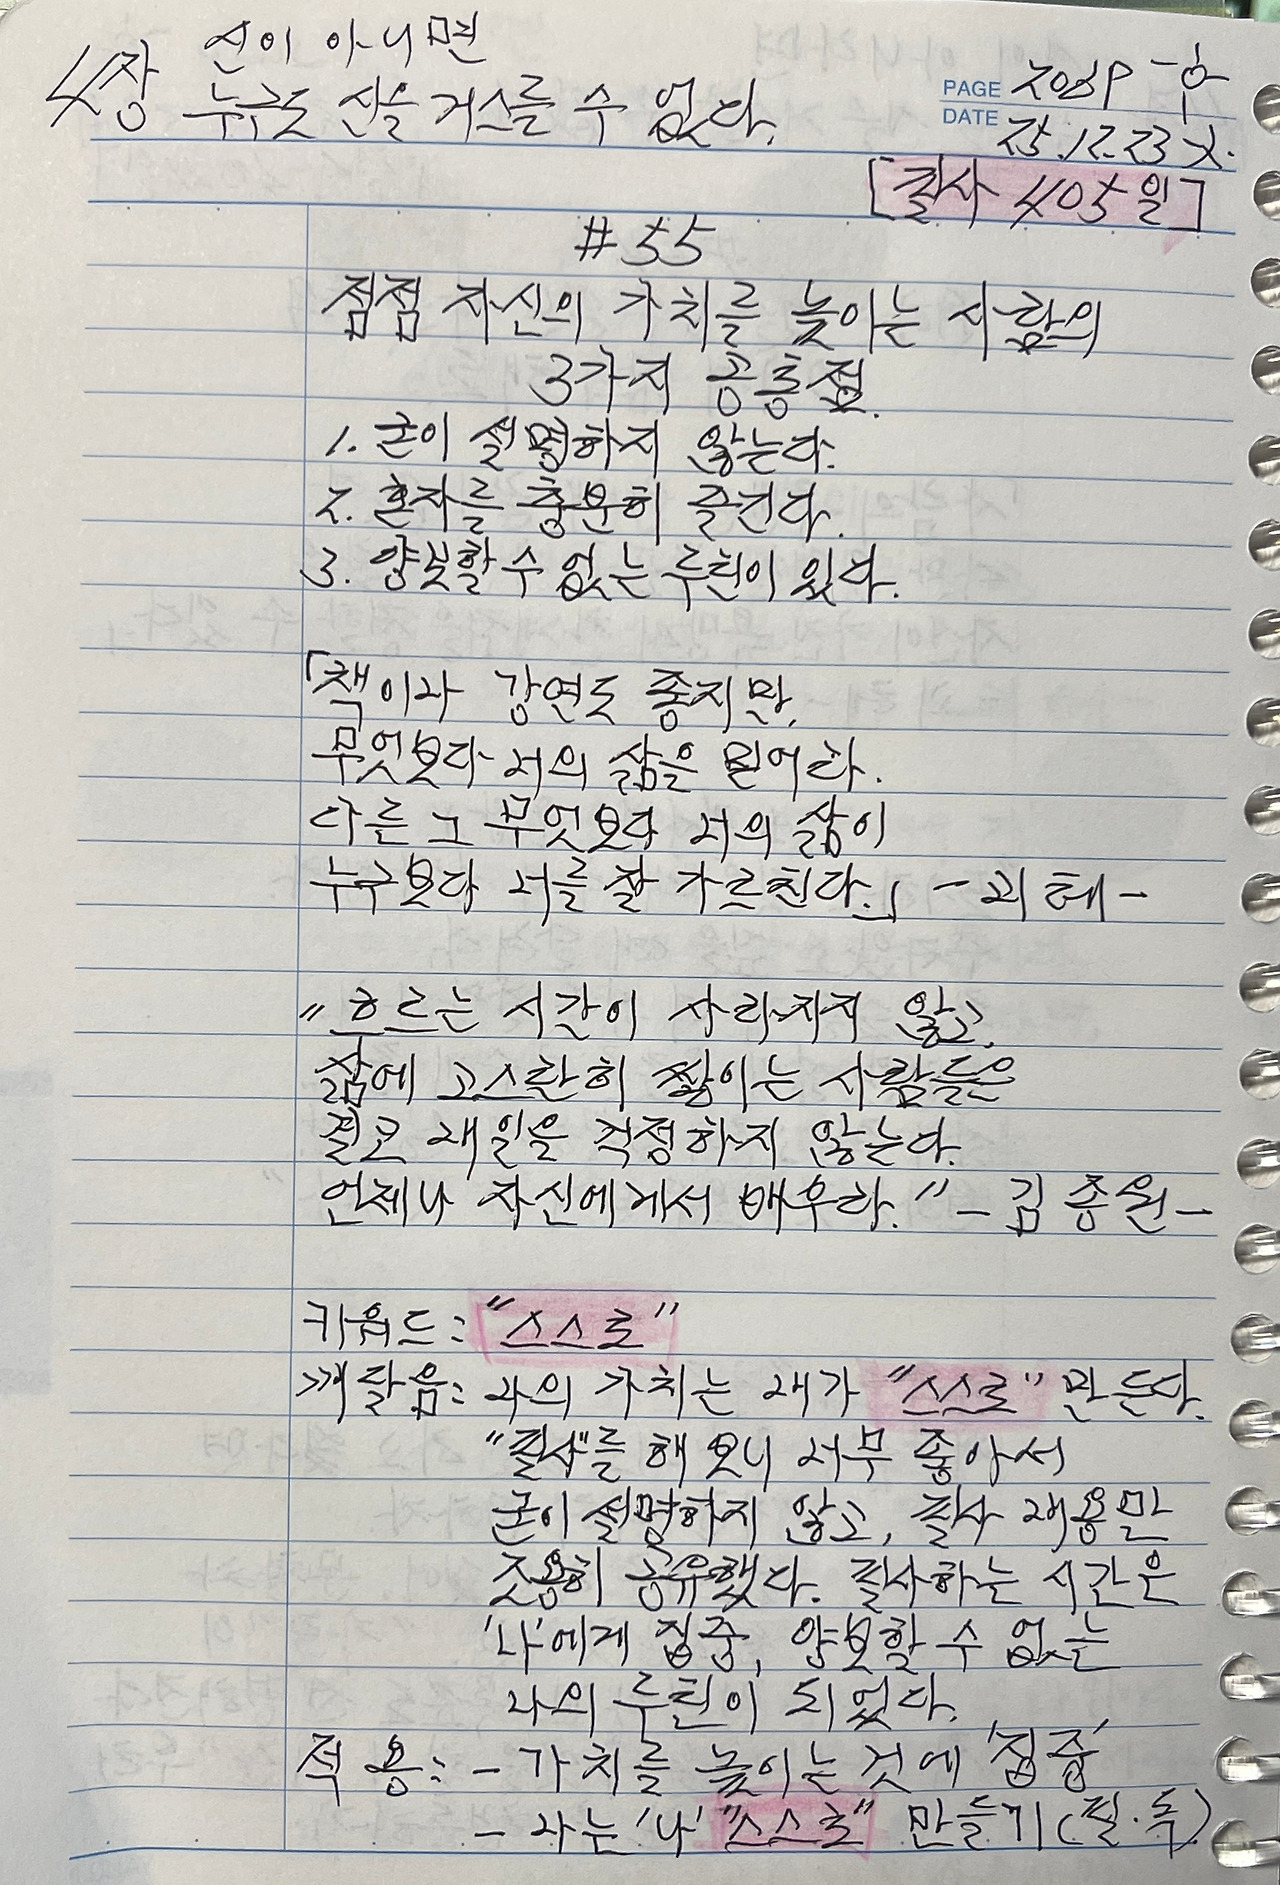 4장 신이 아니면
누구도 신을 거스를 수 없다.
PAGE 206P
DATE 25.12.23 火.
[필사 405일]
#55
점점 자신의 가치를 높이는 사람의
3가지 공통점.
1. 굳이 설명하지 않는다.
2. 혼자를 충분히 즐긴다.
3. 양보할 수 없는 루틴이 있다.
「책이나 강연도 좋지만,
무엇보다 너의 삶을 믿어라.
다른 그 무엇보다 너의 삶이
누구보다 너를 잘 가르친다.」 -괴테-
"흐르는 시간이 사라지지 않고,
삶에 고스란히 쌓이는 사람들은
결코 내일을 걱정하지 않는다.
언제나 자신에게서 배우라." -김종원-
키워드: "스스로"
깨달음: 나의 가치는 내가 "스스로" 만든다.
"필사"를 해 보니 너무 좋아서
굳이 설명하지 않고, 필사 내용만
조용히 공유했다. 필사하는 시간은
'나'에게 집중, 양보할 수 없는
나의 루틴이 되었다.
적용: - 가치를 높이는 것에 '집중'
- 나는 '나' "스스로" 만들기(필·독)